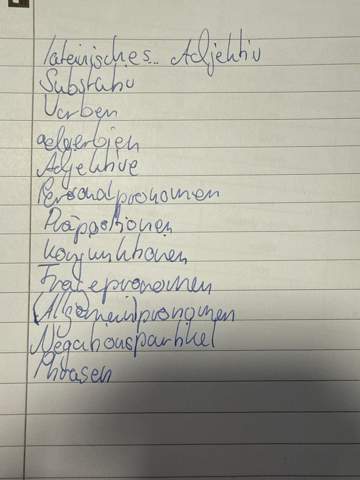 lateinisches.. Adjektiv
Substativ
Verben
Adjektive
Personalpronomen
Präpositionen
Konjunktionen
Fragepronomen
(Allgemein)pronomen
Negationspartikel
Phrasen